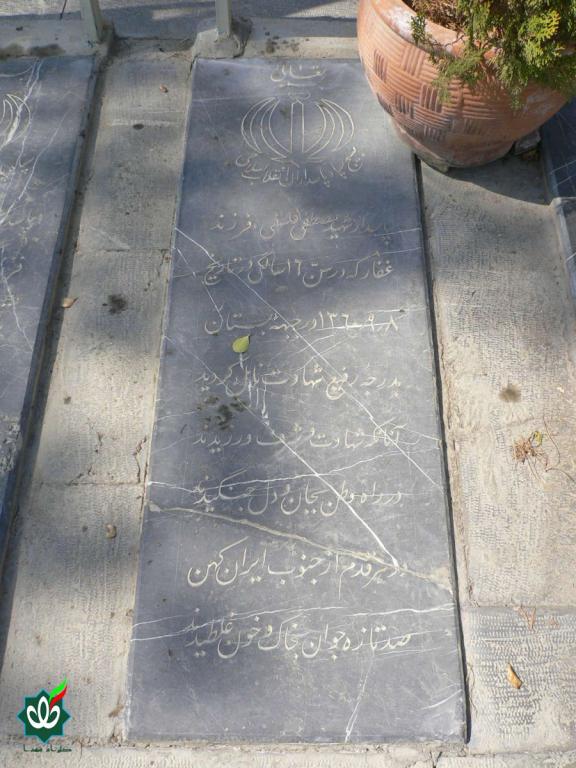 تعالی
بسیج پاسداران انقلاب اسلامی
پاسدار شهید مصطفی فرزند
غفار که در سن ۱۶ سالگی در تاریخ
۱۳۶۰٫۹٫۸ در جبهه بستان
بدرجه رفیع شهادت نائل گردید
آنانکه شهادت و شرف ورزیدند
در راه وطن بجان و دل جنگیدند
در هر قدم از جنوب ایران کهن
صد تازه جوان بخاک و خون غلطیدند